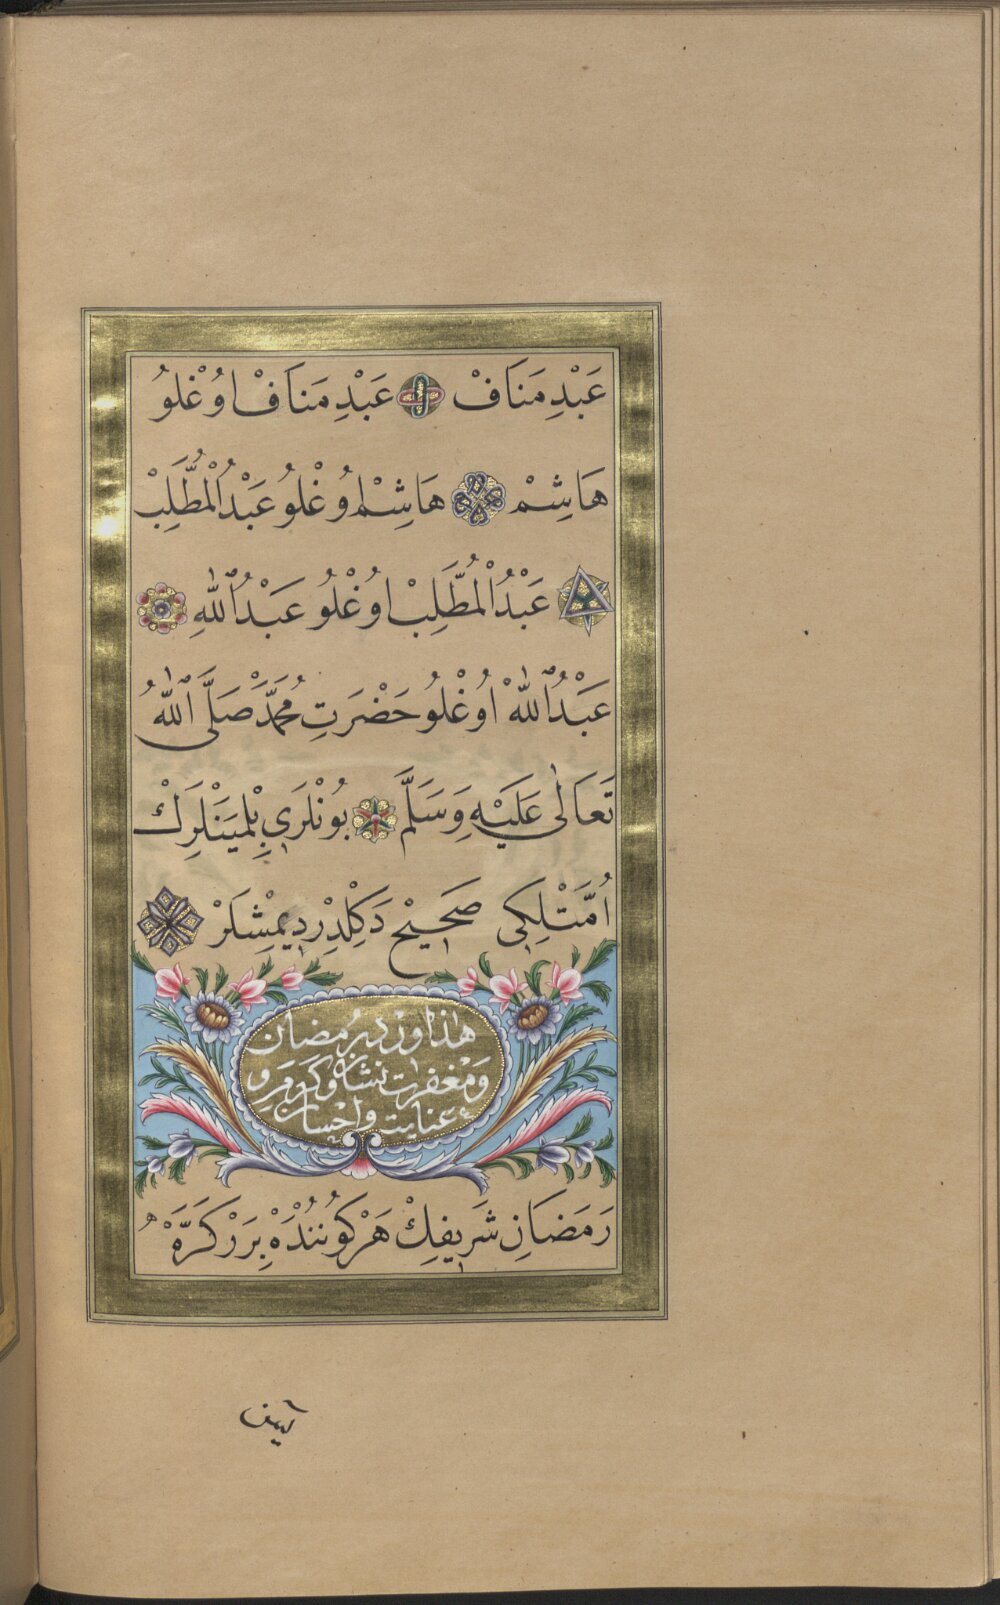 عَبْدِ مَنَافْ عَبْدِ مَنَافْ اوُغْلوُ
هَاشِمْ هَاشِمْ اوُغْلوُ عَبْدُالْمُطَّلِبْ
عَبْدُالْمُطَّلِبْ اوُغْلوُ عَبْدُاللّٰهِ
عَبْدُاللّٰهْ اوُغْلوُ حَضْرَتِ مُحَمَّدْ صَلَّى اللّٰهُ
تَعَالٰى عَلَيْهِ وَسَلَّمْ بوُنْلَرِي بِلْمَيَنْلَرِكْ
اُمَّتْلِكِى صَحِيْحْ دَكِلْدِرْ دِيمِشْلَرْ
هٰذا ورد رمضان
ومغفرت نشان وكرم و
عنايت واحسان
رَمَضَانِ شَرِيفِكْ هَرْ كوُنُنْدَهْ بِرَرْ كَرَّهْ